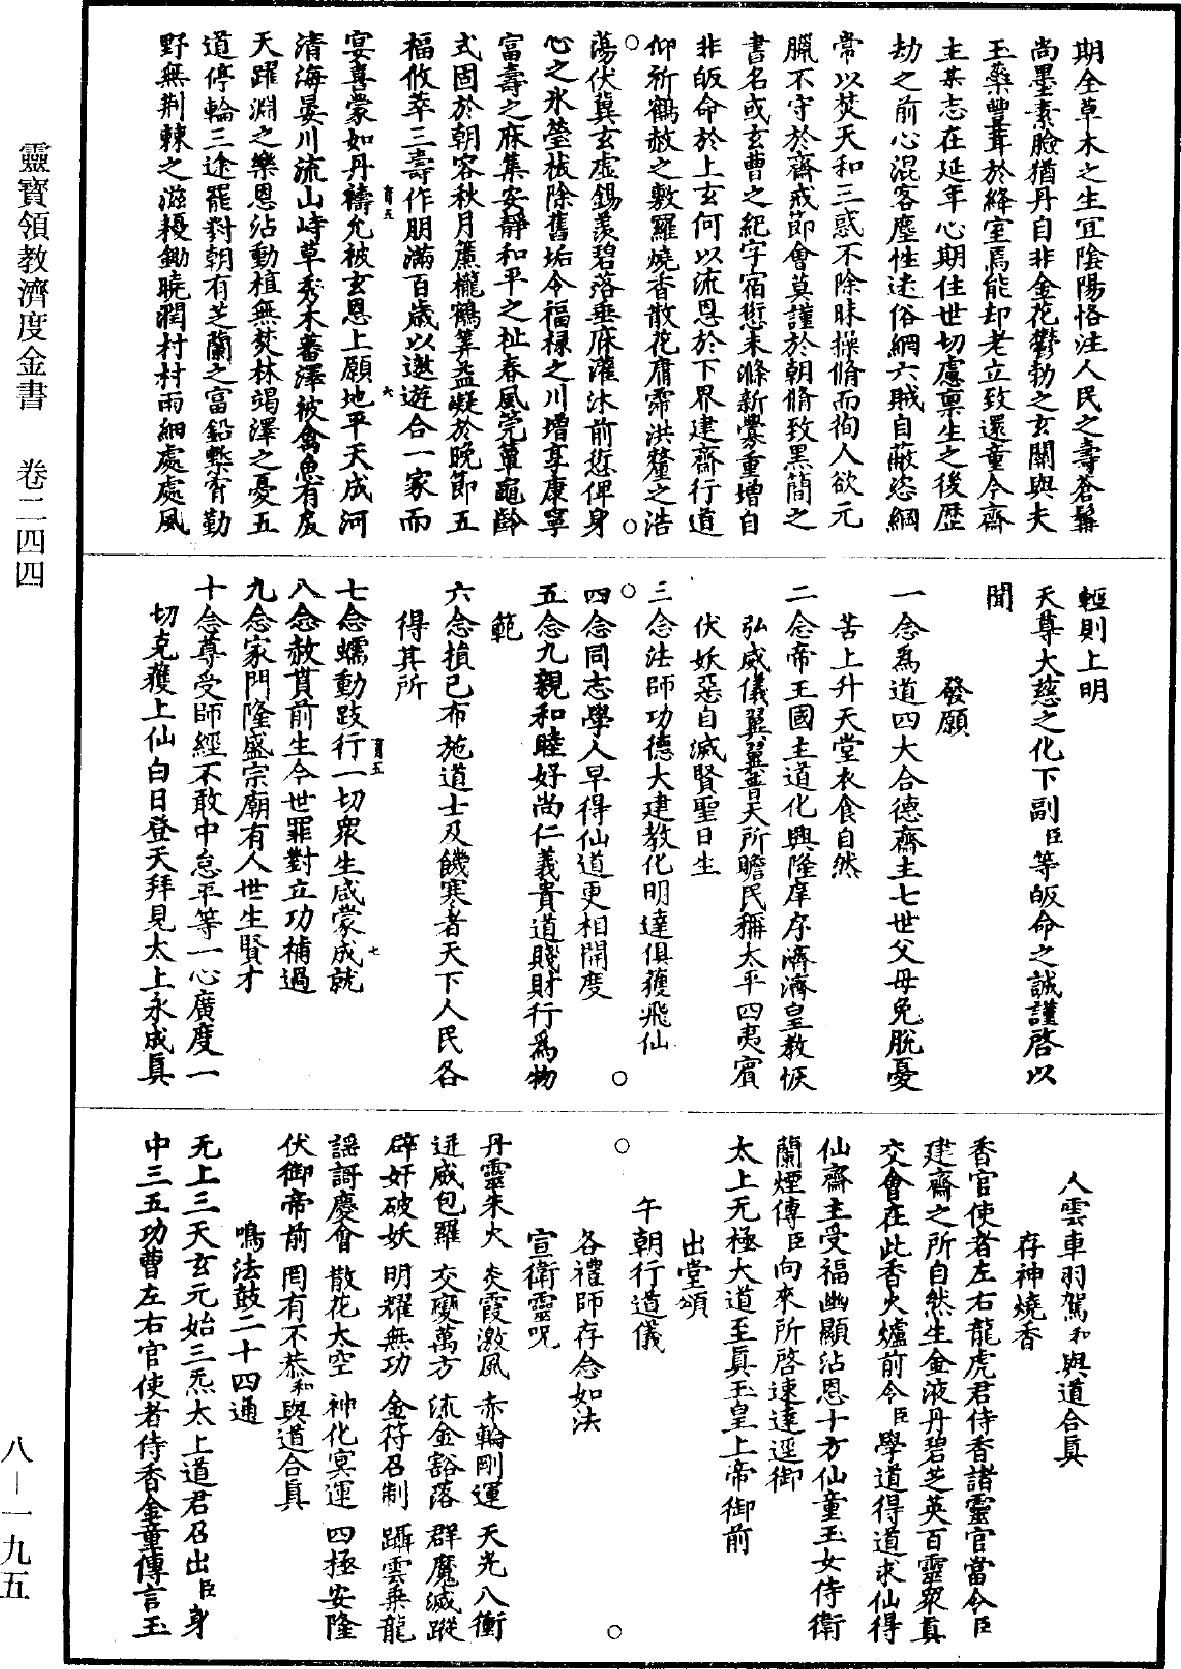 靈寶領教濟度金書 卷二四四
八—一九五
期全草木之生宜陰陽恪注人民之壽蒼髯
尚墨素臉猶丹自非金花鬱勃之玄關與夫
玉蘂豐茸於絳室焉能却老立致還童今齋
主某志在延年心期住世切慮稟生之後歷
劫之前心混客塵性迷俗綱六賊自蔽恣綱
常以焚天和三惑不除昧操脩而徇人欲元
臘不守於齋戒節會莫謹於朝脩致黑簡之
書名或玄曹之紀字宿愆未滌新釁重增自
非皈命於上玄何以流恩於下界建齋行道
仰祈鶴赦之敷羅燒香散花庸霈洪釐之浩
蕩伏冀玄虛錫羨碧落垂庥灌沐前愆俾身
心之氷瑩祓除舊垢令福祿之川增享康寧
富壽之庥集安靜和平之祉春風莞蕈龜齡
式固於朝客秋月簾櫳鶴筭益凝於晚節五
福攸萃三壽作朋滿百歲以遨遊合一家而
宴喜蒙如丹禱允被玄恩上願地平天成河
清海晏川流山峙草秀木蕃澤被禽魚有戾
天躍淵之樂恩沾動植無焚林竭澤之憂五
道停輪三途罷對朝有芝蘭之富鉛槧宵勤
野無荆棘之滋耰鋤曉潤村村雨細處處風
輕則上明
天尊大慈之化下副臣等皈命之誠謹啓以
聞
發願
一念爲道四大合德齋主七世父母免脫憂
苦上升天堂衣食自然
二念帝王國主道化興隆庠序濟濟皇教恢
弘威儀翼翼普天所瞻民稱太平四夷賓
伏妖惡自滅賢聖日生
三念法師功德大建教化明達俱獲飛仙
四念同志學人早得仙道更相開度
五念九親和睦好尚仁義貴道賤財行爲物
範
六念損己布施道士及饑寒者天下人民各
得其所
七念蠕動跂行一切衆生咸蒙成就
八念赦貰前生今世罪對立功補過
九念家門隆盛宗廟有人世生賢才
十念尊受師經不敢中怠平等一心廣度一
切克獲上仙白日登天拜見太上永成眞
人雲車羽駕和與道合眞
存神燒香
香官使者左右龍虎君侍香諸靈官當令臣
建齋之所自然生金液丹碧芝英百靈衆眞
交會在此香火爐前令臣學道得道求仙得
仙齋主受福幽顯沾恩十方仙童玉女侍衛
蘭煙傳臣向來所啓速達逕御
太上无極大道至眞玉皇上帝御前
出堂頌
午朝行道儀
各禮師存念如法
宣衛靈呪
丹靈朱火 炎霞激風 赤輪剛運 天光八衝
迸威包羅 交變萬方 流金豁落 群魔滅蹤
辟奸破妖 明耀無功 金符召制 躡雲乘龍
謡謌慶會 散花太空 神化冥運 四極安隆
伏御帝前 罔有不恭和與道合眞
鳴法鼓二十四通
无上三天玄元始三炁太上道君召出臣身
中三五功曹左右官使者侍香金童傳言玉